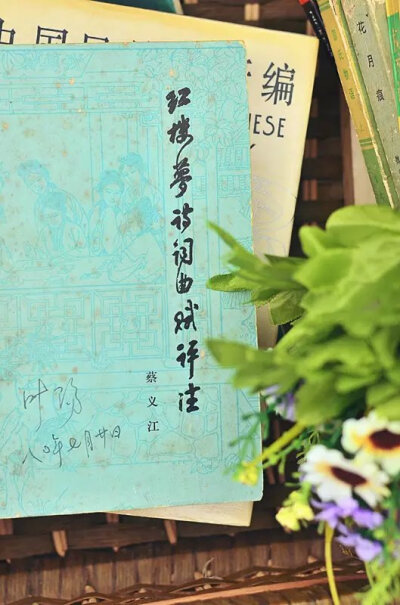 中国
编
ESE
花月痕
红楼梦诗词曲赋评注
蔡义江
八〇年七月廿日